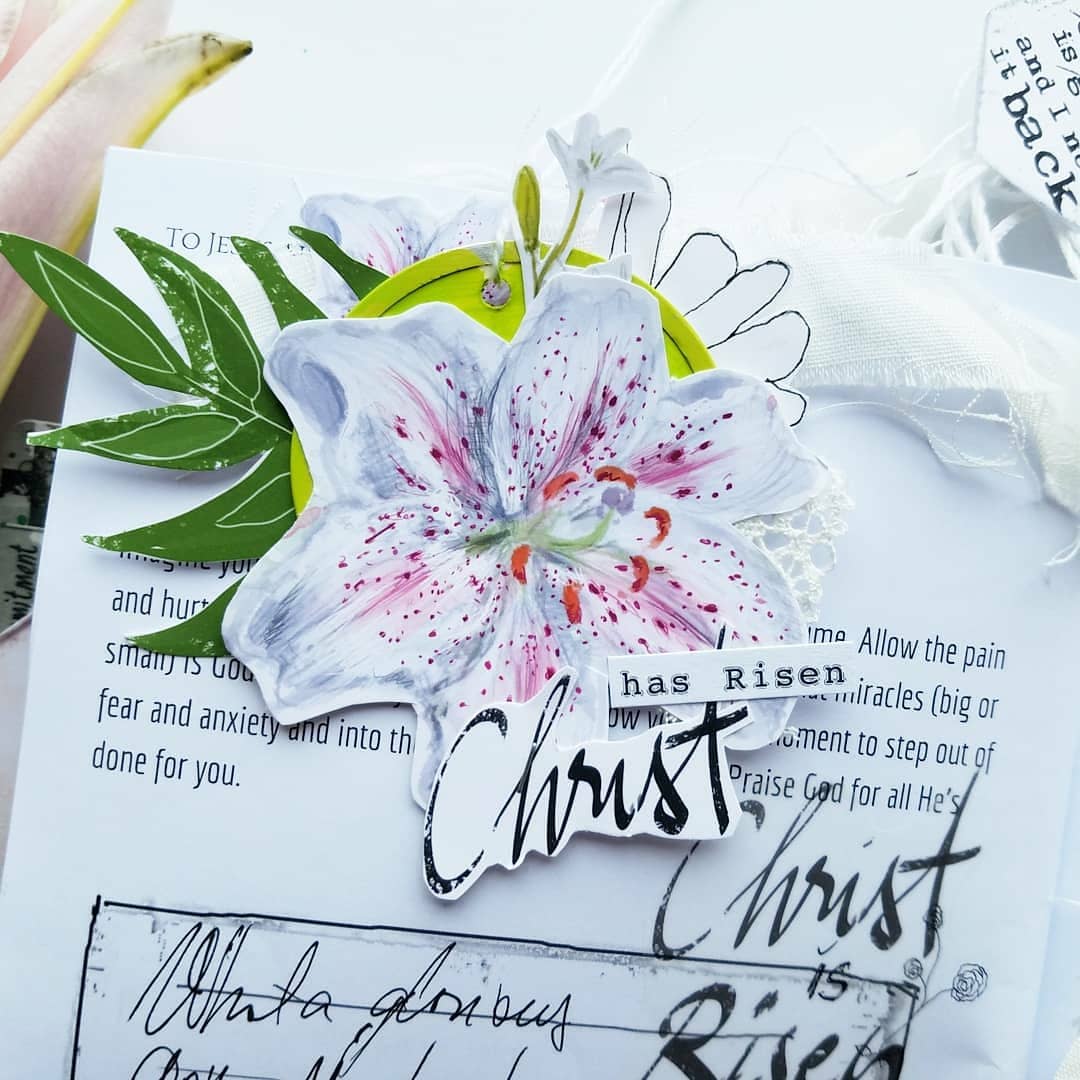 is
and I
it back
TO
and hurt
small) is God
fear and anxiety and into
done for you.
Allow the pain
miracles (big or
moment to step out of
Praise God for all He's
has Risen
Christ
Christ
is
Risen
What a glorious